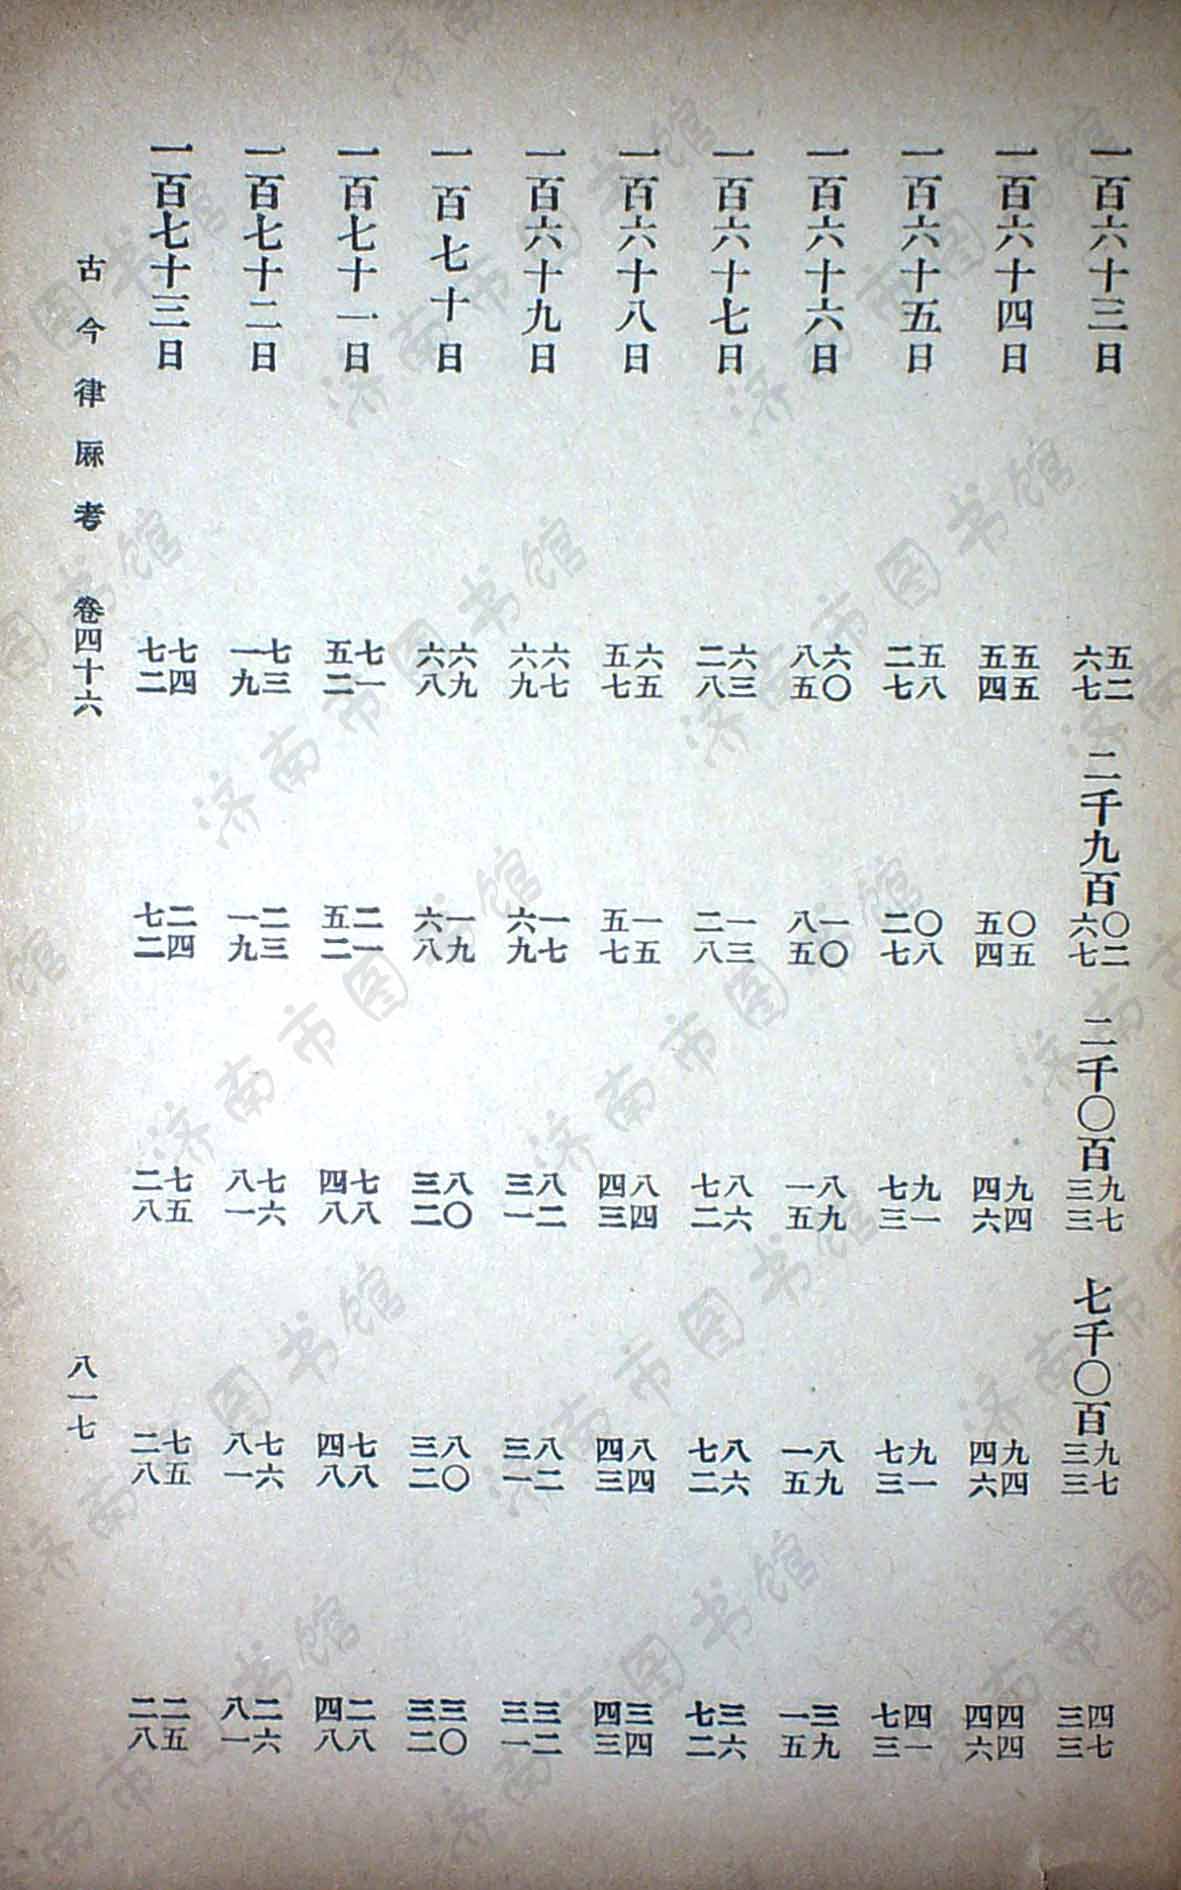 一百六十三日 五二六七 二千九百〇二六七 二千〇百九七三三 七千〇百九七三三 四七三三
一百六十四日 五五五四 〇五五四 九四四六 九四四六 四四四六
一百六十五日 五八二七 〇八二七 九一七三 九一七三 四一七三
一百六十六日 六〇八五 一〇八五 八九一五 八九一五 三九一五
一百六十七日 六三二八 一三二八 八六七二 八六七二 三六七二
一百六十八日 六五五七 一五五七 八四四三 八四四三 三四四三
一百六十九日 六七六九 一七六九 八二三一 八二三一 三二三一
一百七十日 六九六八 一九六八 八〇三二 八〇三二 三〇三二
一百七十一日 七一五二 二一五二 七八四八 七八四八 二八四八
一百七十二日 七三一九 二三一九 七六八一 七六八一 二六八一
一百七十三日 七四七二 二四七二 七五二八 七五二八 二五二八
古今律厤考 卷四十六 八一七
济南市图书馆